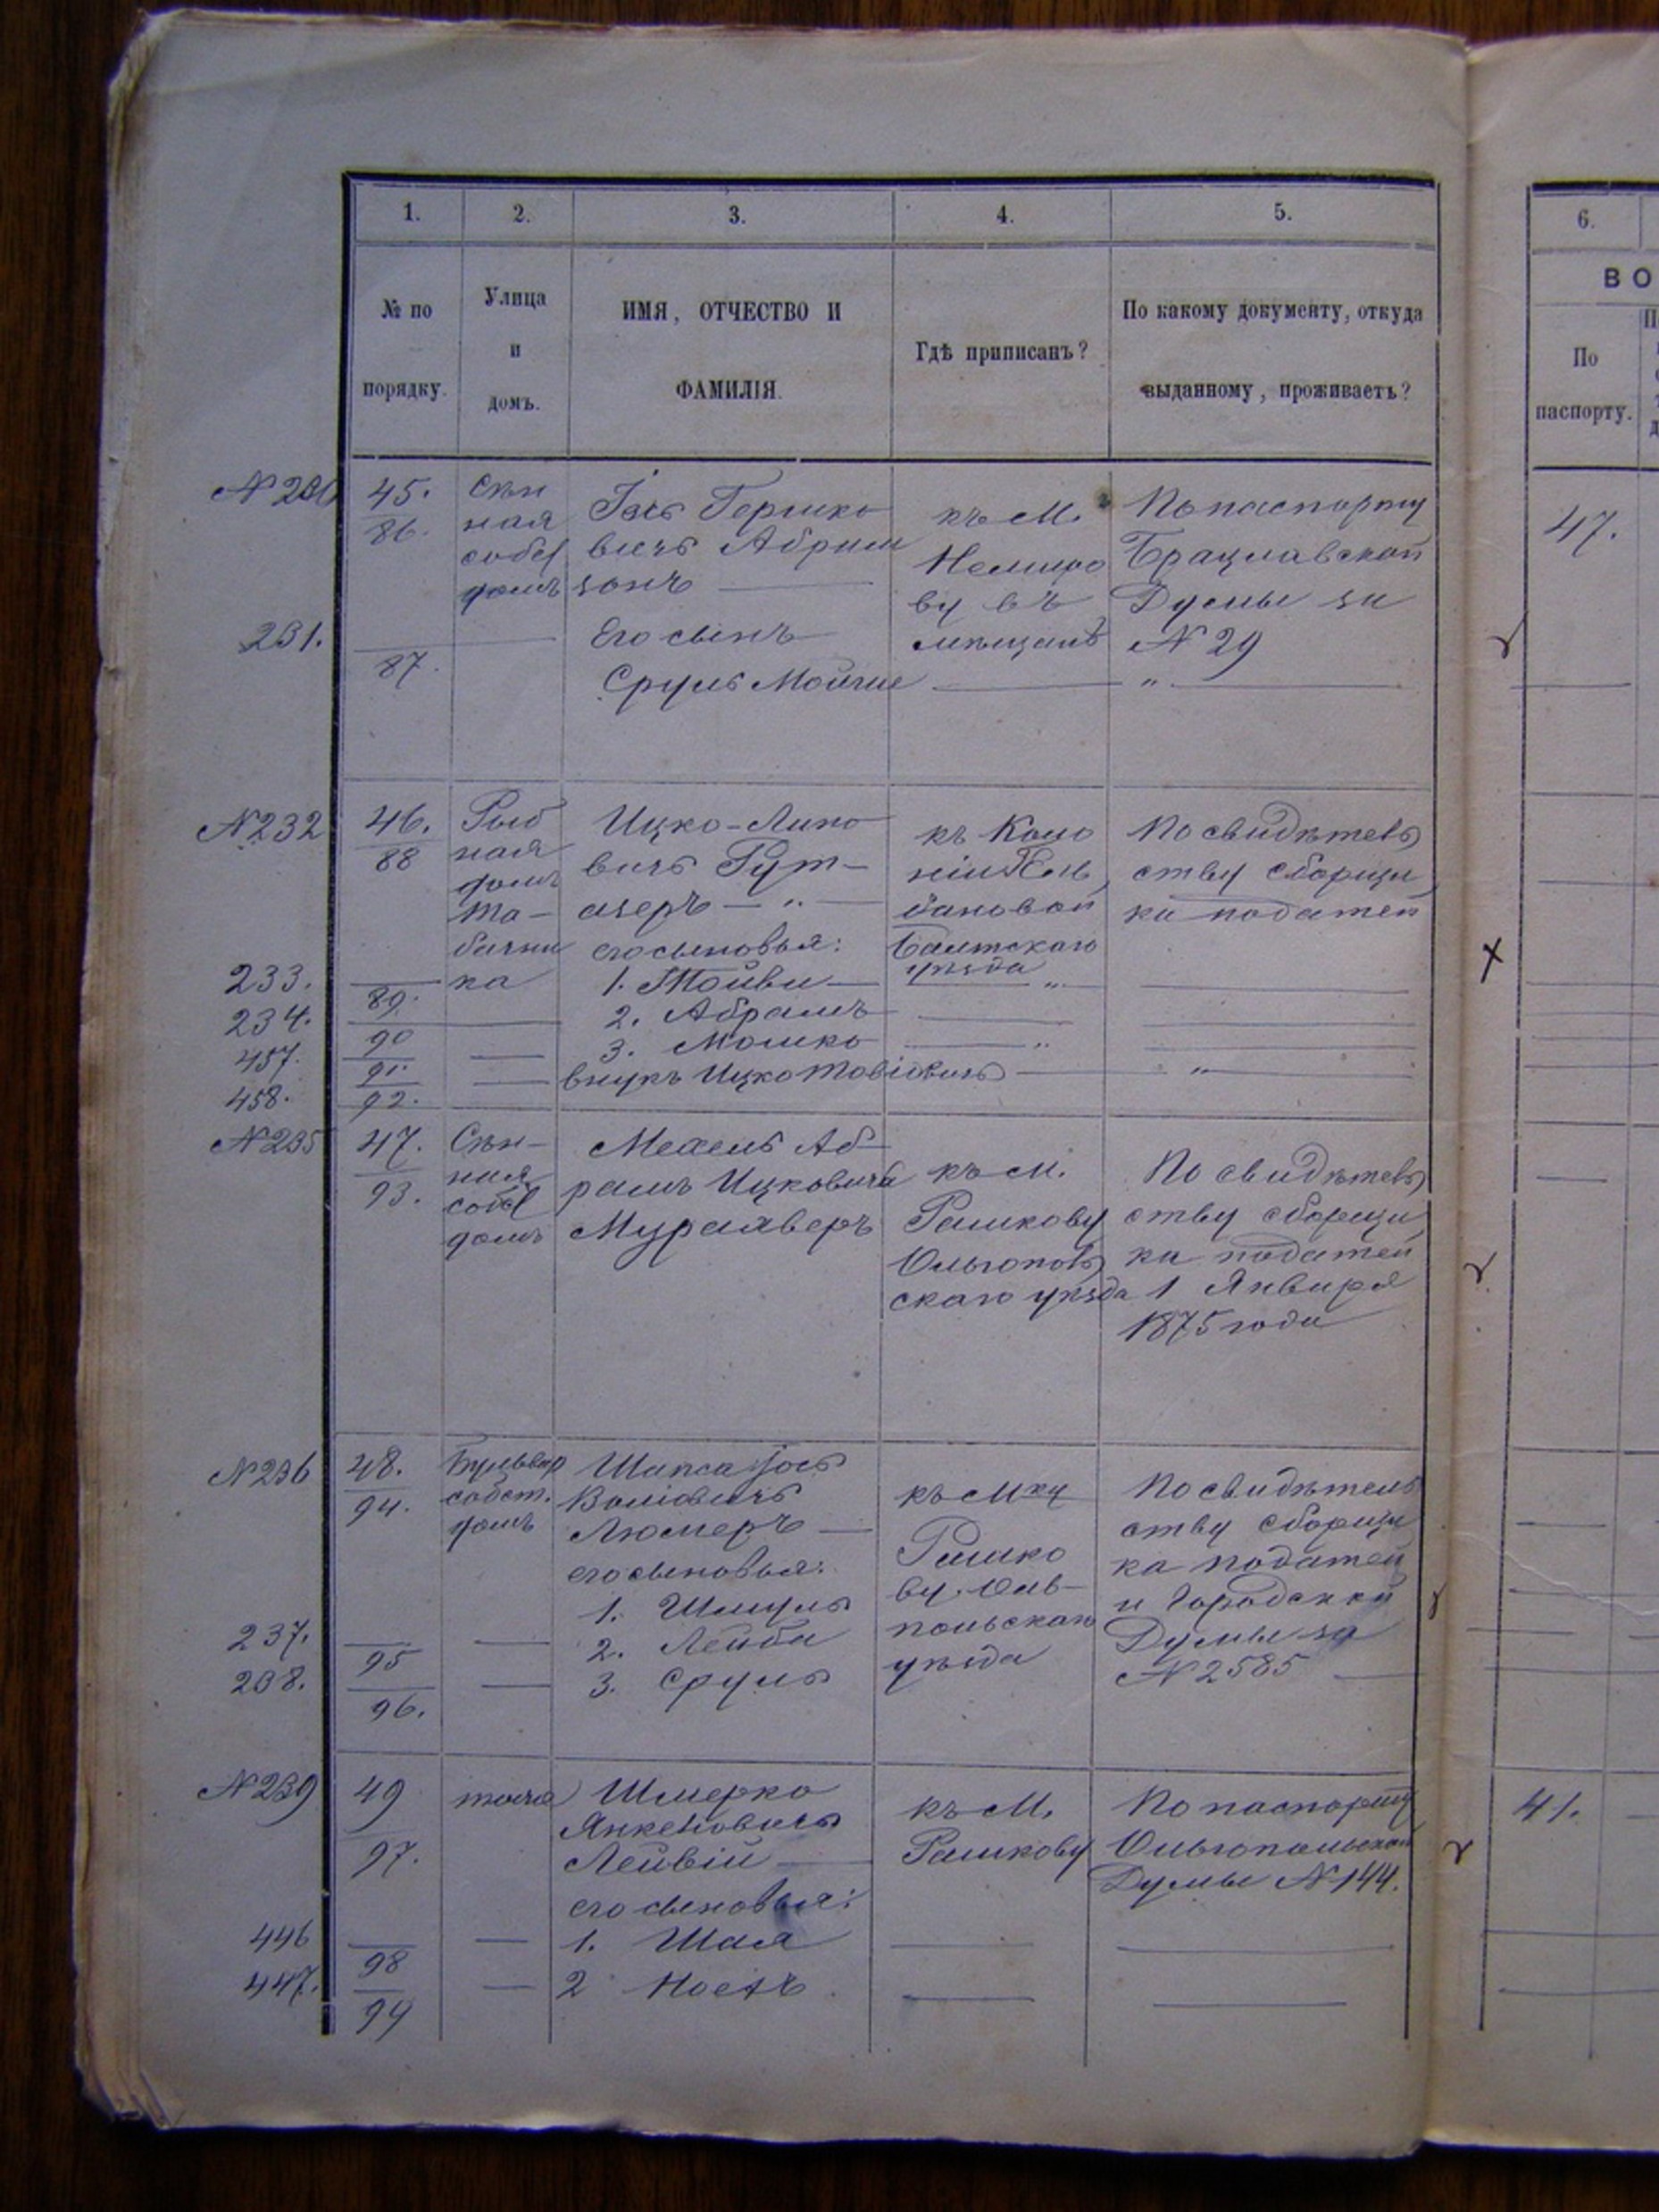 1. 2. 3. 4. 5. 6.
№ по порядку.
Улица и домъ.
ИМЯ, ОТЧЕСТВО И ФАМИЛІЯ.
Гдѣ приписанъ?
По какому документу, откуда выданному, проживаетъ?
ВО
По паспорту.
N 230
45.
86.
Сѣн
ная
собст
домъ
Іось Гершко
вичъ Абрам
зонъ
къ м.
Немиро
ву въ
мѣщанѣ
По паспорту
Брацлавской
Думы за
N 29
47.
231.
87.
Его сынъ
Сруль Мойше
"
N 232
46.
88
Рыб
ная
домъ
Та-
бачни
ка
Ицко-Липо
вичъ Гут-
ахеръ — " —
его сыновья:
къ Коло
ніи
Балтскаго
уѣзда
По свидѣтель
ству сборщи
ка податей
233.
89.
1. Тойви
"
234.
90
2. Абрамъ
457.
91.
3. Мошко
"
458.
92.
внукъ Ицко Товіовичъ
"
N 235
47.
93.
Сѣн-
ная
собст
домъ
Мехель Аб-
рамъ Ицковичъ
къ м.
Рашкову
Ольгополь
скаго уѣзда
По свидѣтель
ству сборщи
ка податей
1 Января
1875 года
N 236
48.
94.
Бульвар
собст.
домъ
Шапса Іось
Волковичъ
его сыновья:
1. Шмуль
къ м-ку
Рашко
ву. Оль-
польскаго
уѣзда
По свидѣтель
ству сборщи
ка податей
и Городской
Думы за
N 2585
237.
95
2. Лейба
238.
96.
3. Сруль
N 239
49
97.
тоже
Шмерко
Янкеловичъ
Лейвій
его сыновья:
къ м.
Рашкову
По паспорту
Ольгопольской
Думы N 144.
41.
446
98
1. Шая
447.
99
2